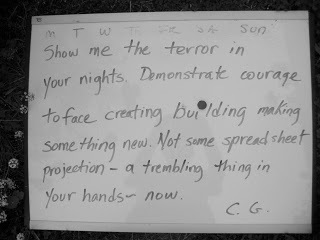 M T W Th Fri Sat Sun
Show me the terror in
your nights. Demonstrate courage
to face creating building making
something new. Not some spreadsheet
projection – a trembling thing in
your hands – now.
C. G.